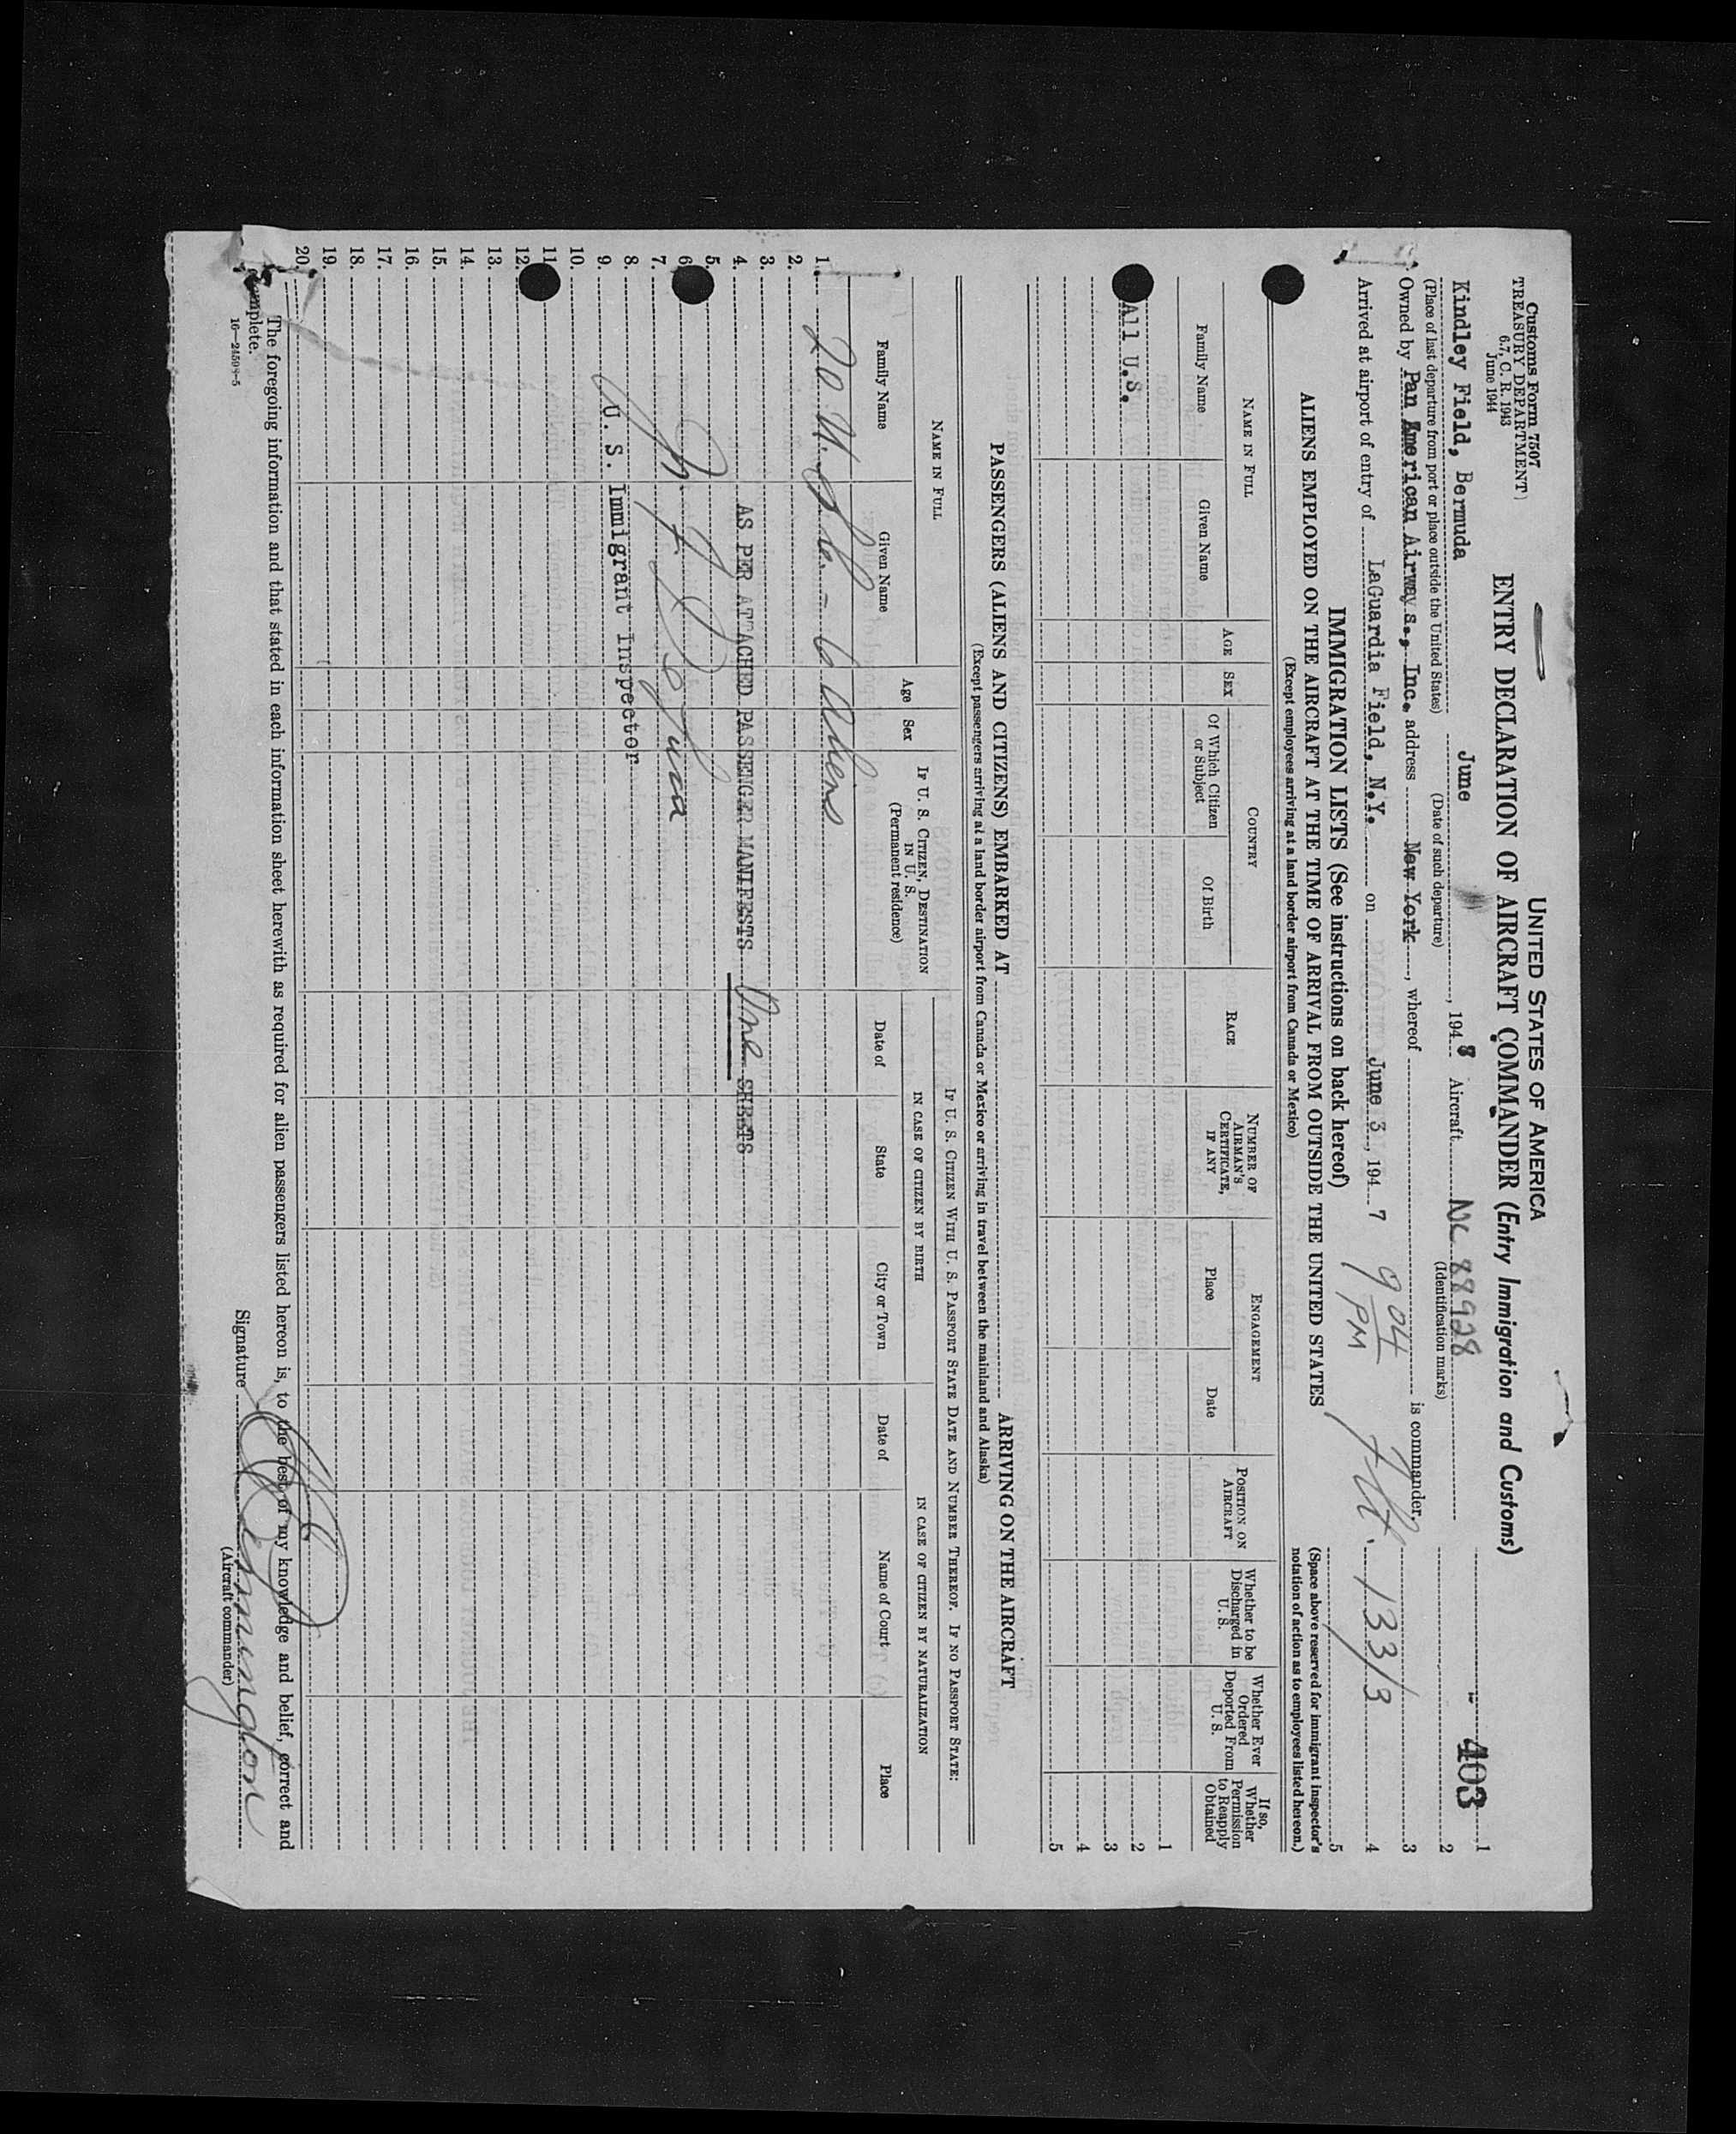 Customs Form 7507
TREASURY DEPARTMENT
6.7, C. R. 1943
June 1944
UNITED STATES OF AMERICA
ENTRY DECLARATION OF AIRCRAFT COMMANDER (Entry Immigration and Customs)
403 1
Kindley Field, Bermuda June , 194 8 Aircraft NC 88928 2
(Place of last departure from port or place outside the United States) (Date of such departure) (Identification marks)
Owned by Pan American Airways., Inc. address New York , whereof is commander, 3
Arrived at airport of entry of LaGuardia Field, N.Y. on June 3 , 194 7 9 04 PM Flt. 133/3 4
5
IMMIGRATION LISTS (See instructions on back hereof)
(Space above reserved for immigrant inspector's notation of action as to employees listed hereon.)
ALIENS EMPLOYED ON THE AIRCRAFT AT THE TIME OF ARRIVAL FROM OUTSIDE THE UNITED STATES
(Except employees arriving at a land border airport from Canada or Mexico)
NAME IN FULL
Family Name
Given Name
AGE
SEX
COUNTRY
Of Which Citizen or Subject
Of Birth
RACE
NUMBER OF AIRMAN'S CERTIFICATE, IF ANY
ENGAGEMENT
Place
Date
POSITION ON AIRCRAFT
Whether to be Discharged in U. S.
Whether Ever Ordered Deported From U. S.
If so, Whether Permission to Reapply Obtained
1
2
All U.S. 3
4
5
PASSENGERS (ALIENS AND CITIZENS) EMBARKED AT ARRIVING ON THE AIRCRAFT
(Except passengers arriving at a land border airport from Canada or Mexico or arriving in travel between the mainland and Alaska)
NAME IN FULL
Family Name
Given Name
Age
Sex
IF U. S. CITIZEN, DESTINATION IN U. S.
(Permanent residence)
IF U. S. CITIZEN WITH U. S. PASSPORT STATE DATE AND NUMBER THEREOF. IF NO PASSPORT STATE:
IN CASE OF CITIZEN BY BIRTH
Date of
State
City or Town
IN CASE OF CITIZEN BY NATURALIZATION
Date of
Name of Court
Place
1. 20 U.S. - 6 Aliens
2.
3.
4. AS PER ATTACHED PASSENGER MANIFESTS One SHEETS
5.
6
7.
8. U. S. Immigrant Inspector
9.
10.
11
12.
13.
14.
15.
16.
17.
18.
19.
20.
The foregoing information and that stated in each information sheet herewith as required for alien passengers listed hereon is, to the best of my knowledge and belief, correct and
complete.
Signature
(Aircraft commander)
16—24509-5